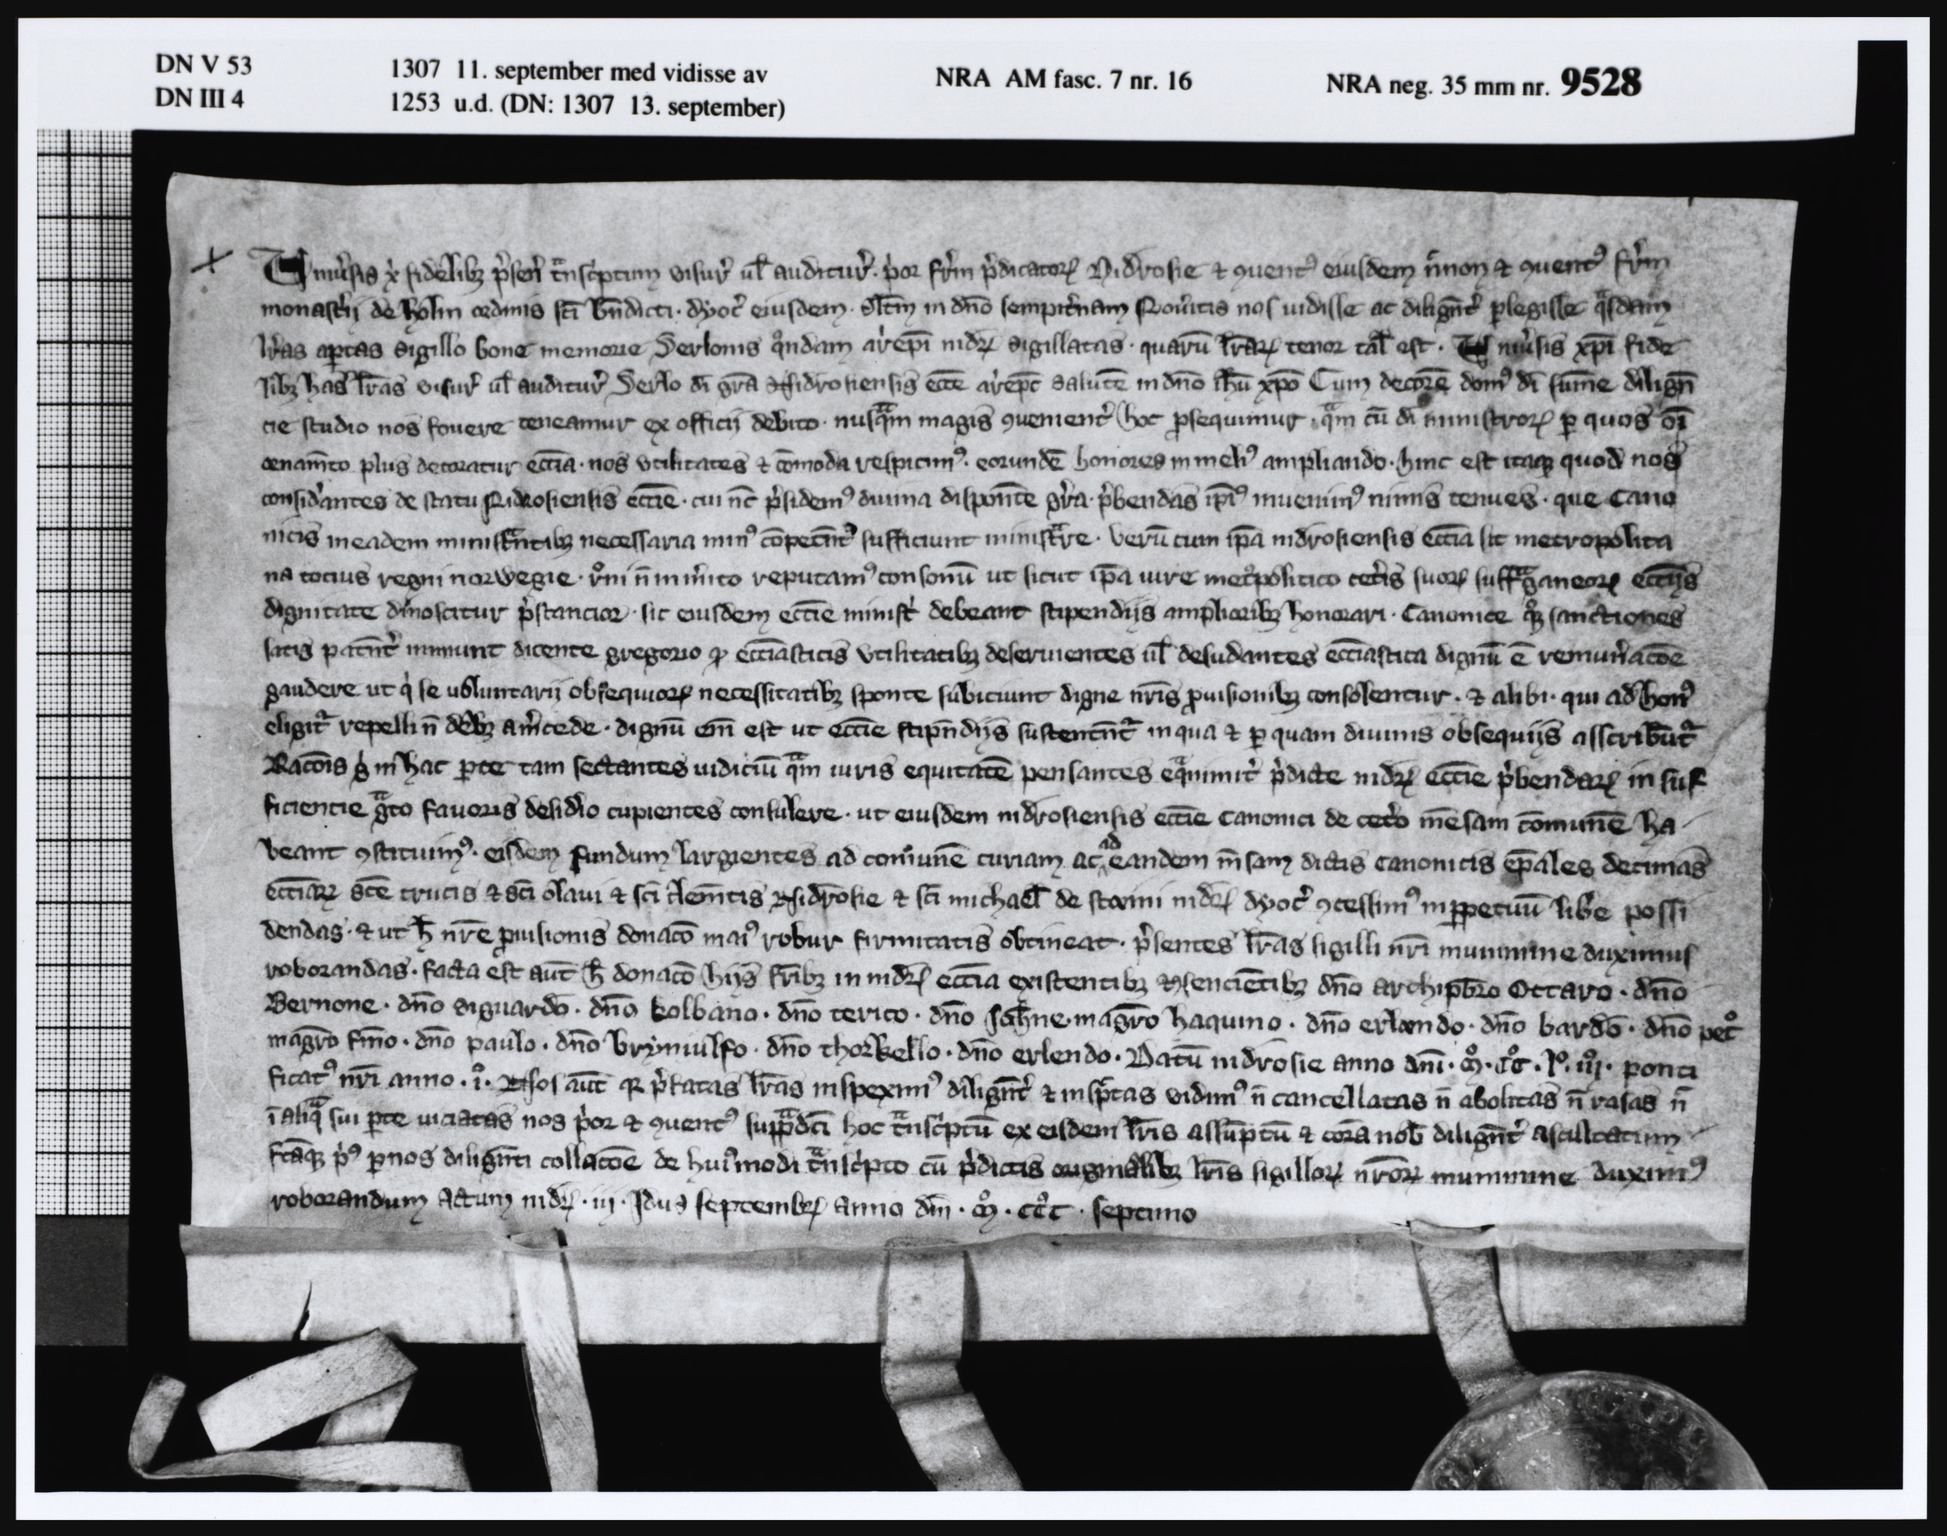 DN V 53 1307 11. september med vidisse av NRA AM fasc. 7 nr. 16 NRA neg. 35 mm nr. 9528
DN III 4 1253 u.d. (DN: 1307 13. september)
Vniu̓sis x̓ fidelibꝫ p̓sen̓ t̃nsc̓ptum visur̓ ul̄ auditur̓. p̓or fr̄m p̓dicatoꝝ Nidrosie ⁊ ꝯuentꝰ eiusdem ⁊ ꝯuentꝰ fr̄m
monast̓ij de holm ordinis sc̄i bn̄dicti · dyoc̓ eiusdem · sl̄tm in dn̄o sempit̓nam Nou̓itis nos uidisse ac dilignt̓ ꝑlegisse qͣsdam
lr̄as aꝑtas sigillo bone memorie Serlonis qͦndam ar̓epī nidꝝ sigillatas · quarū lr̄aꝝ tenor tal̄ est · Vniu̓sis xp̄i fide
libꝫ has lr̄as visur̓ ul̄ auditur̓ Serlo di gr̄a Nidrosiensis ecc̄e ar̓epc̄ salutē in dn̄o ih̄u xp̄o Cum decorē domꝰ dī sum̄e dilign̄
cie studio nos fouere teneamur ex officij debito · nusqͣm magis ꝯuenient̓ hoc ꝓsequimur · qͣm cū dī ministroꝝ ꝑ quos oī
ornam̄to plus decoratur ecc̄ia · nos vtilitates ⁊ cōmoda respicimꝰ · eorundē honores in meliꝰ ampliando · hinc est itaqꝫ quod nos
consid̓antes de statu Nidrosiensis ecc̄ie · cui nc̄ p̓sidemꝰ diuina disponēte gr̄a · p̓bendas ip̄iꝰ inuenimꝰ nimis tenues · que Cano
nicis in eadem minist̃ntibꝫ necessaria minꝰ cōpetn̄t̓ sufficiunt minist̃re · verū cum ip̄a nidrosiensis ecc̄ia sit metropolita
na tocius regni norwegie · rͦni n̄ inm̓ito reputamꝰ consonū ut sicut ip̄a iure met̊politico cet̓is suoꝝ suffᷓganeoꝝ ecc̄ijs
dignitate dinoscitur p̓stancior · sic eiusdem ecc̄ie minist̓ debeant stipendijs amplioribꝫ honorari · Canonice qͦꝫ sanctiones
satis patn̄t̓ innuunt dicente gregorio ꝙ ecc̄iasticis vtilitatibꝫ deseruientes ul̄ desudantes ecc̄iastica dignū ē remun̓acōe
gaudere ut q̓ se uoluntarij obsequioꝝ necessitatibꝫ sponte subiciunt digne nr̄is ꝓuisionibꝫ consolentur · ⁊ alibi · qui ad honꝰ
eligit̃ repelli n̄ debꝫ a m̓cede · dignū em̄ est ut ecc̄ie stipn̄dijs sustentn̄t̃ in qua ⁊ ꝑ quam diuinis obsequijs asscribūt̃
Racōis g̓ in hac ꝑte tam sectantes iudiciū qͣm iuris equitatē pensantes eqͣnimit̓ p̓dicte nidꝝ ecc̄ie p̓bendaꝝ in suf
ficientie gͣto fauoris desid̓io cupientes consulere · ut eiusdem nidrosiensis ecc̄ie Canonici de cet̓o mēsam cōmunē ha
beant ꝯstituimꝰ · eisdem fundum largientes ad comunē curiam ac ad eandem m̄sam dictis Canonicis ep̄ales decimas
ecc̄iaꝝ sc̄e crucis ⁊ sc̄i olaui ⁊ sc̄i clem̄tis Nidrosie ⁊ sc̄i michael̄ de steini nidꝝ dyoc̓ ꝯcessimꝰ inꝑpetuū lib̓e possi
dendas · ⁊ ut h̄ nr̄e ꝓuisionis donacō maiꝰ robur firmitatis obtineat · p̓sentes lr̄as sigilli nr̄i munimine duximus
roborandas · facta est aūt h̄ donacō hijs fr̄ibꝫ in nidꝝ ecc̄ia existentibꝫ ꝯsencientibꝫ dn̄o archipbr̄o Ottaro · dn̄o
Bernone · dn̄o siguardo · dn̄o kolbano · dn̄o terico · dn̄o Joh̄ne · magr̄o haquino · dn̄o erlando · dn̄o bardo · dn̄o pet̊
magr̄o fin̄o · dn̄o paulo · dn̄o bryniulfo · dn̄o thorkello · dn̄o erlendo · Datū nidrosie anno dn̄i · mͦ · ccͦ · lͦ · iijͦ · ponti
ficatꝰ nr̄i anno · iͦ · Nos aūt qꝛ p̓fatas lr̄as inspeximꝰ dilign̄t̓ ⁊ insp̓tas vidimꝰ n̄ cancellatas n̄ abolitas n̄ rasas n̄
ī aliqͣ sui ꝑte uiciatas nos p̓or ⁊ ꝯuentꝰ sup̃dc̄i hoc t̃nsc̓ptū ex eisdem lr̄is assūptū ⁊ corā nob̄ dilign̄t̓ ascultatum
fc̄aqꝫ p̓ꝰ ꝑ nos dilign̄ti collacōe de huiꝰmodi t̃nsc̓pto cū p̓dictis originalibꝫ lr̄is sigilloꝝ nr̄oꝝ munimine duximꝰ
roborandum Actum nidꝝ · iij · Idus septembꝝ anno dn̄i · mͦ · cccͦ · septimo